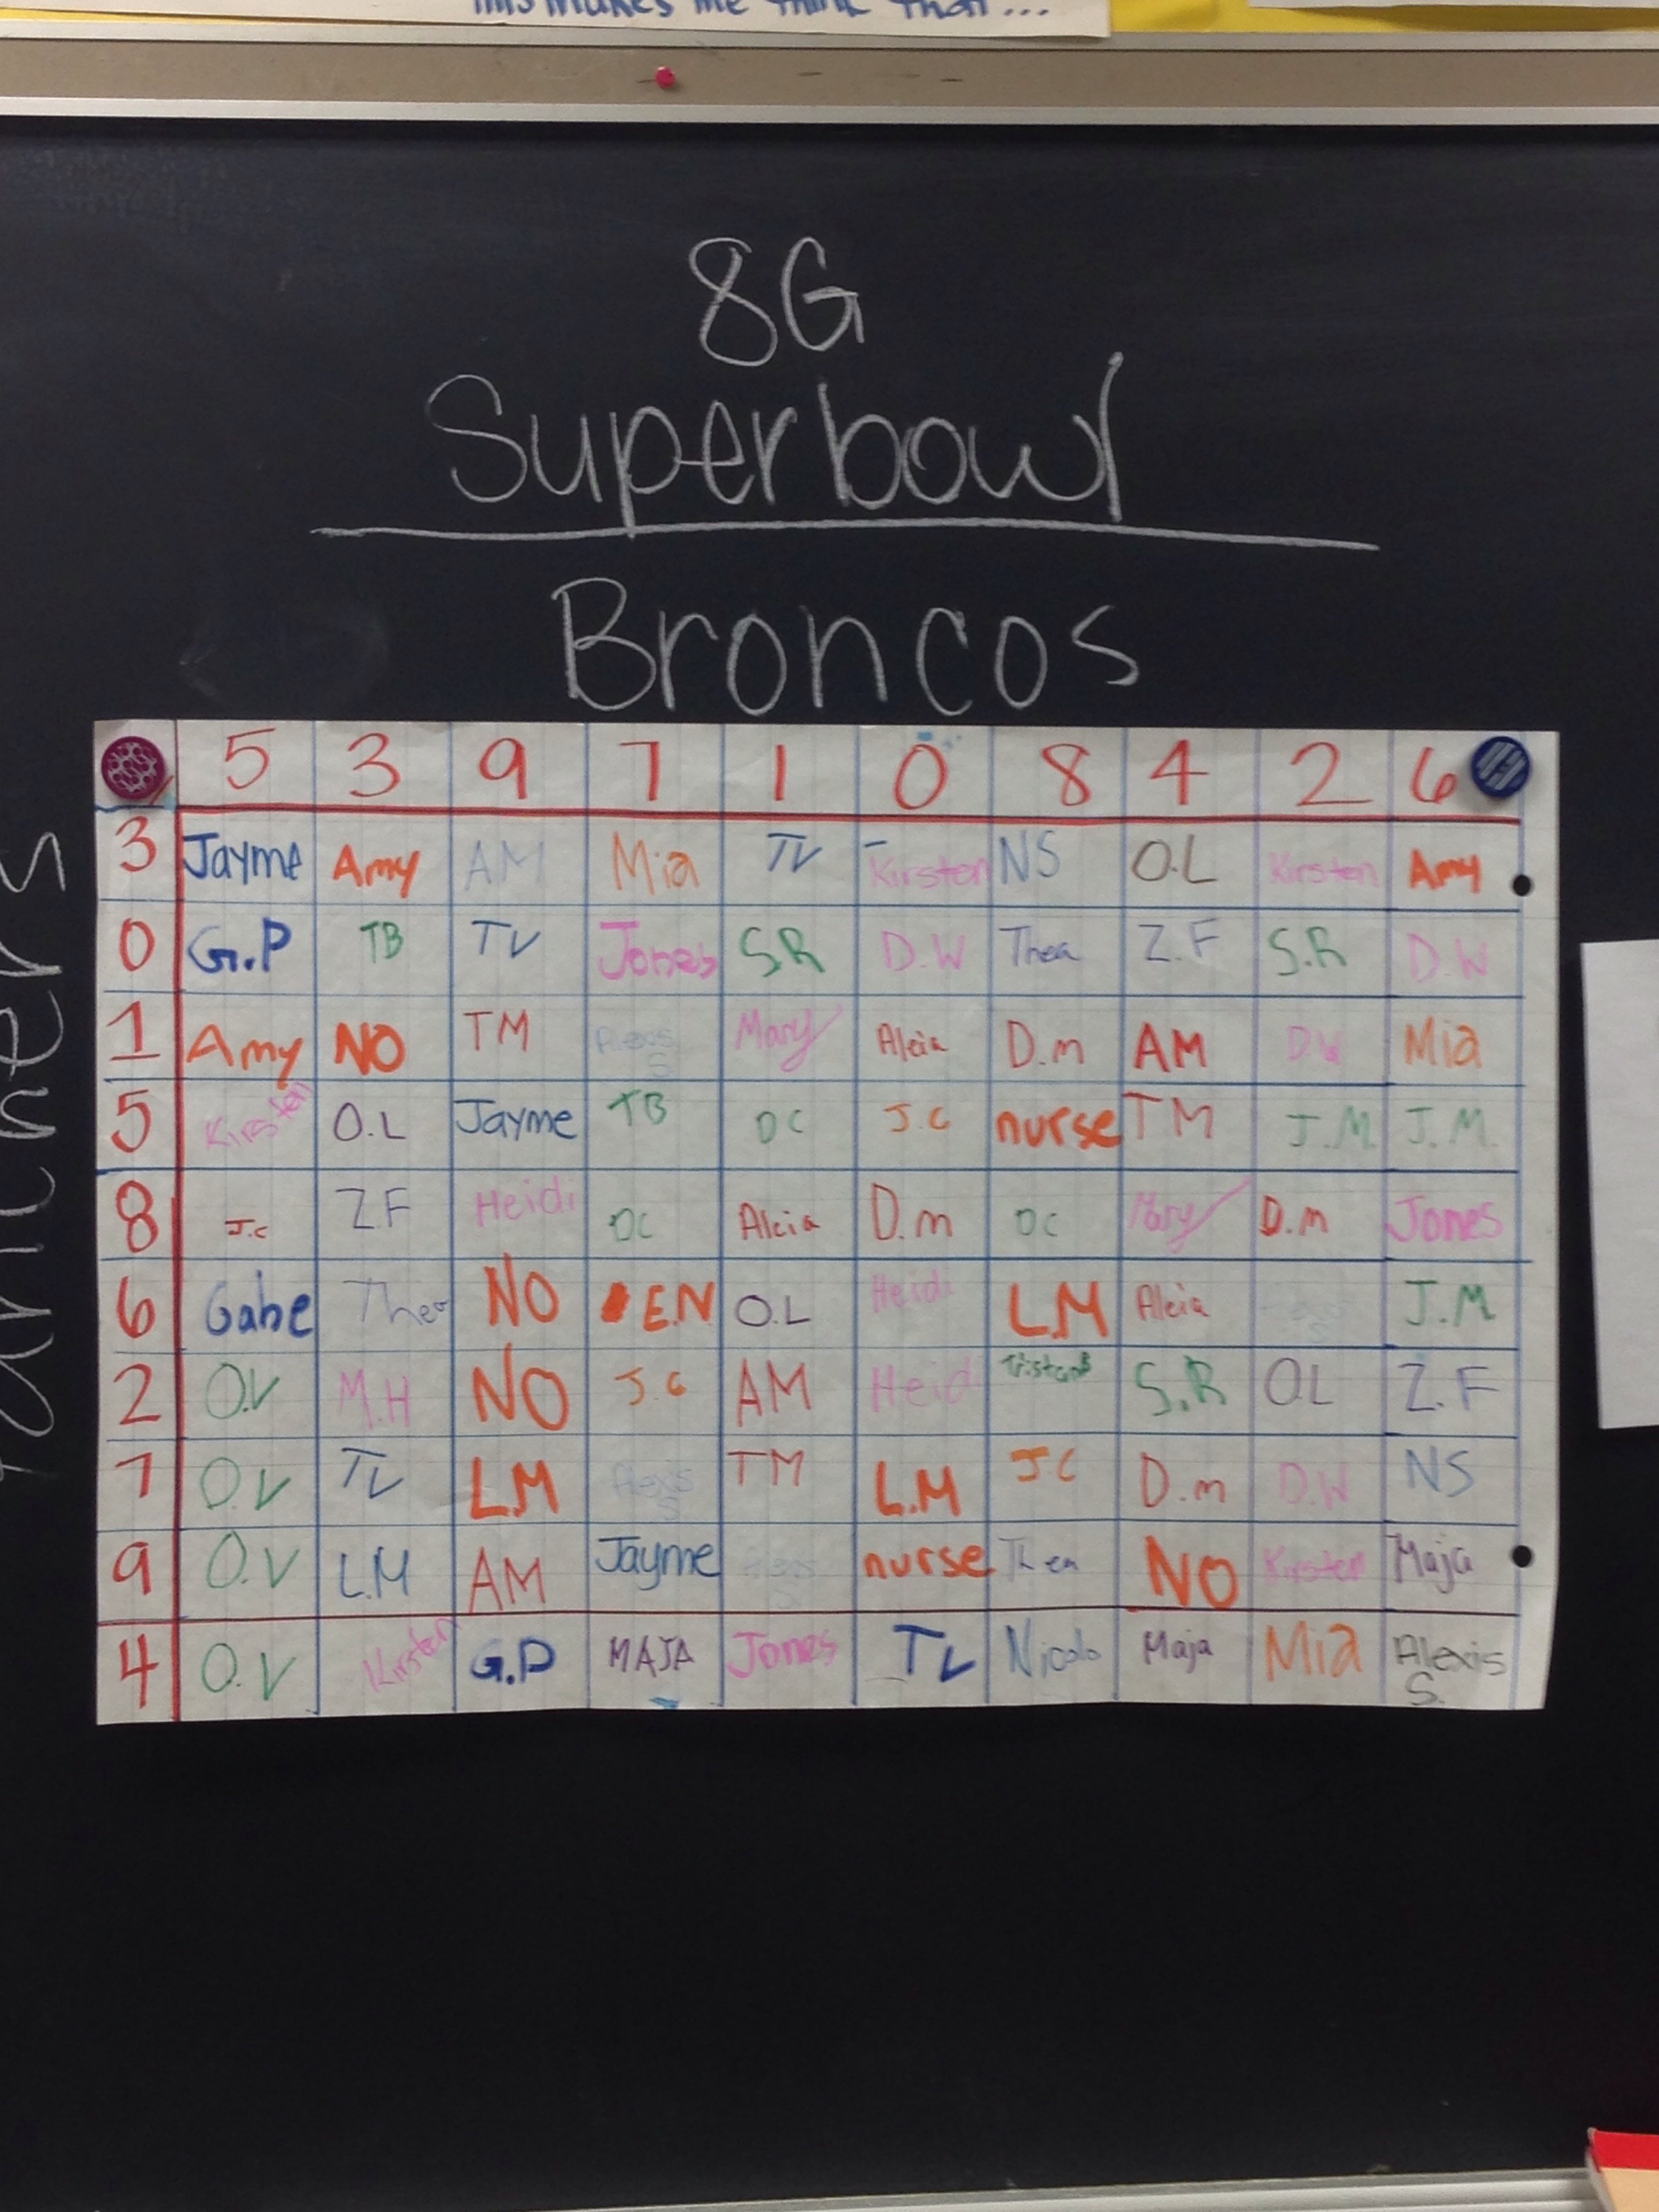 This makes me think that...
8G
Superbowl
Broncos
Panthers
5 3 9 7 1 0 8 4 2 6
3 Jayme Amy AM Mia TV Kirsten NS O.L Kirsten Amy
0 G.P TB TV Jones S.R D.W Thea Z.F S.R D.W
1 Amy NO TM Alexis S Mary Alcia D.m AM D.W Mia
5 Kirsten O.L Jayme TB DC J.C nurse TM J.M J.M.
8 J.C Z.F Heidi DC Alcia D.m DC Mary D.m Jones
6 Gabe NO E.N O.L Heidi L.M Alcia J.M
2 O.V M.H NO J.C AM Heidi S.R O.L Z.F
7 O.V TV L.M Alexis S TM L.M J.C D.m D.W NS
9 O.V L.M AM Jayme nurse Thea NO Kirsten Maja
4 O.V Kirsten G.P MAJA Jones TV Nicolo Maja Mia Alexis S.